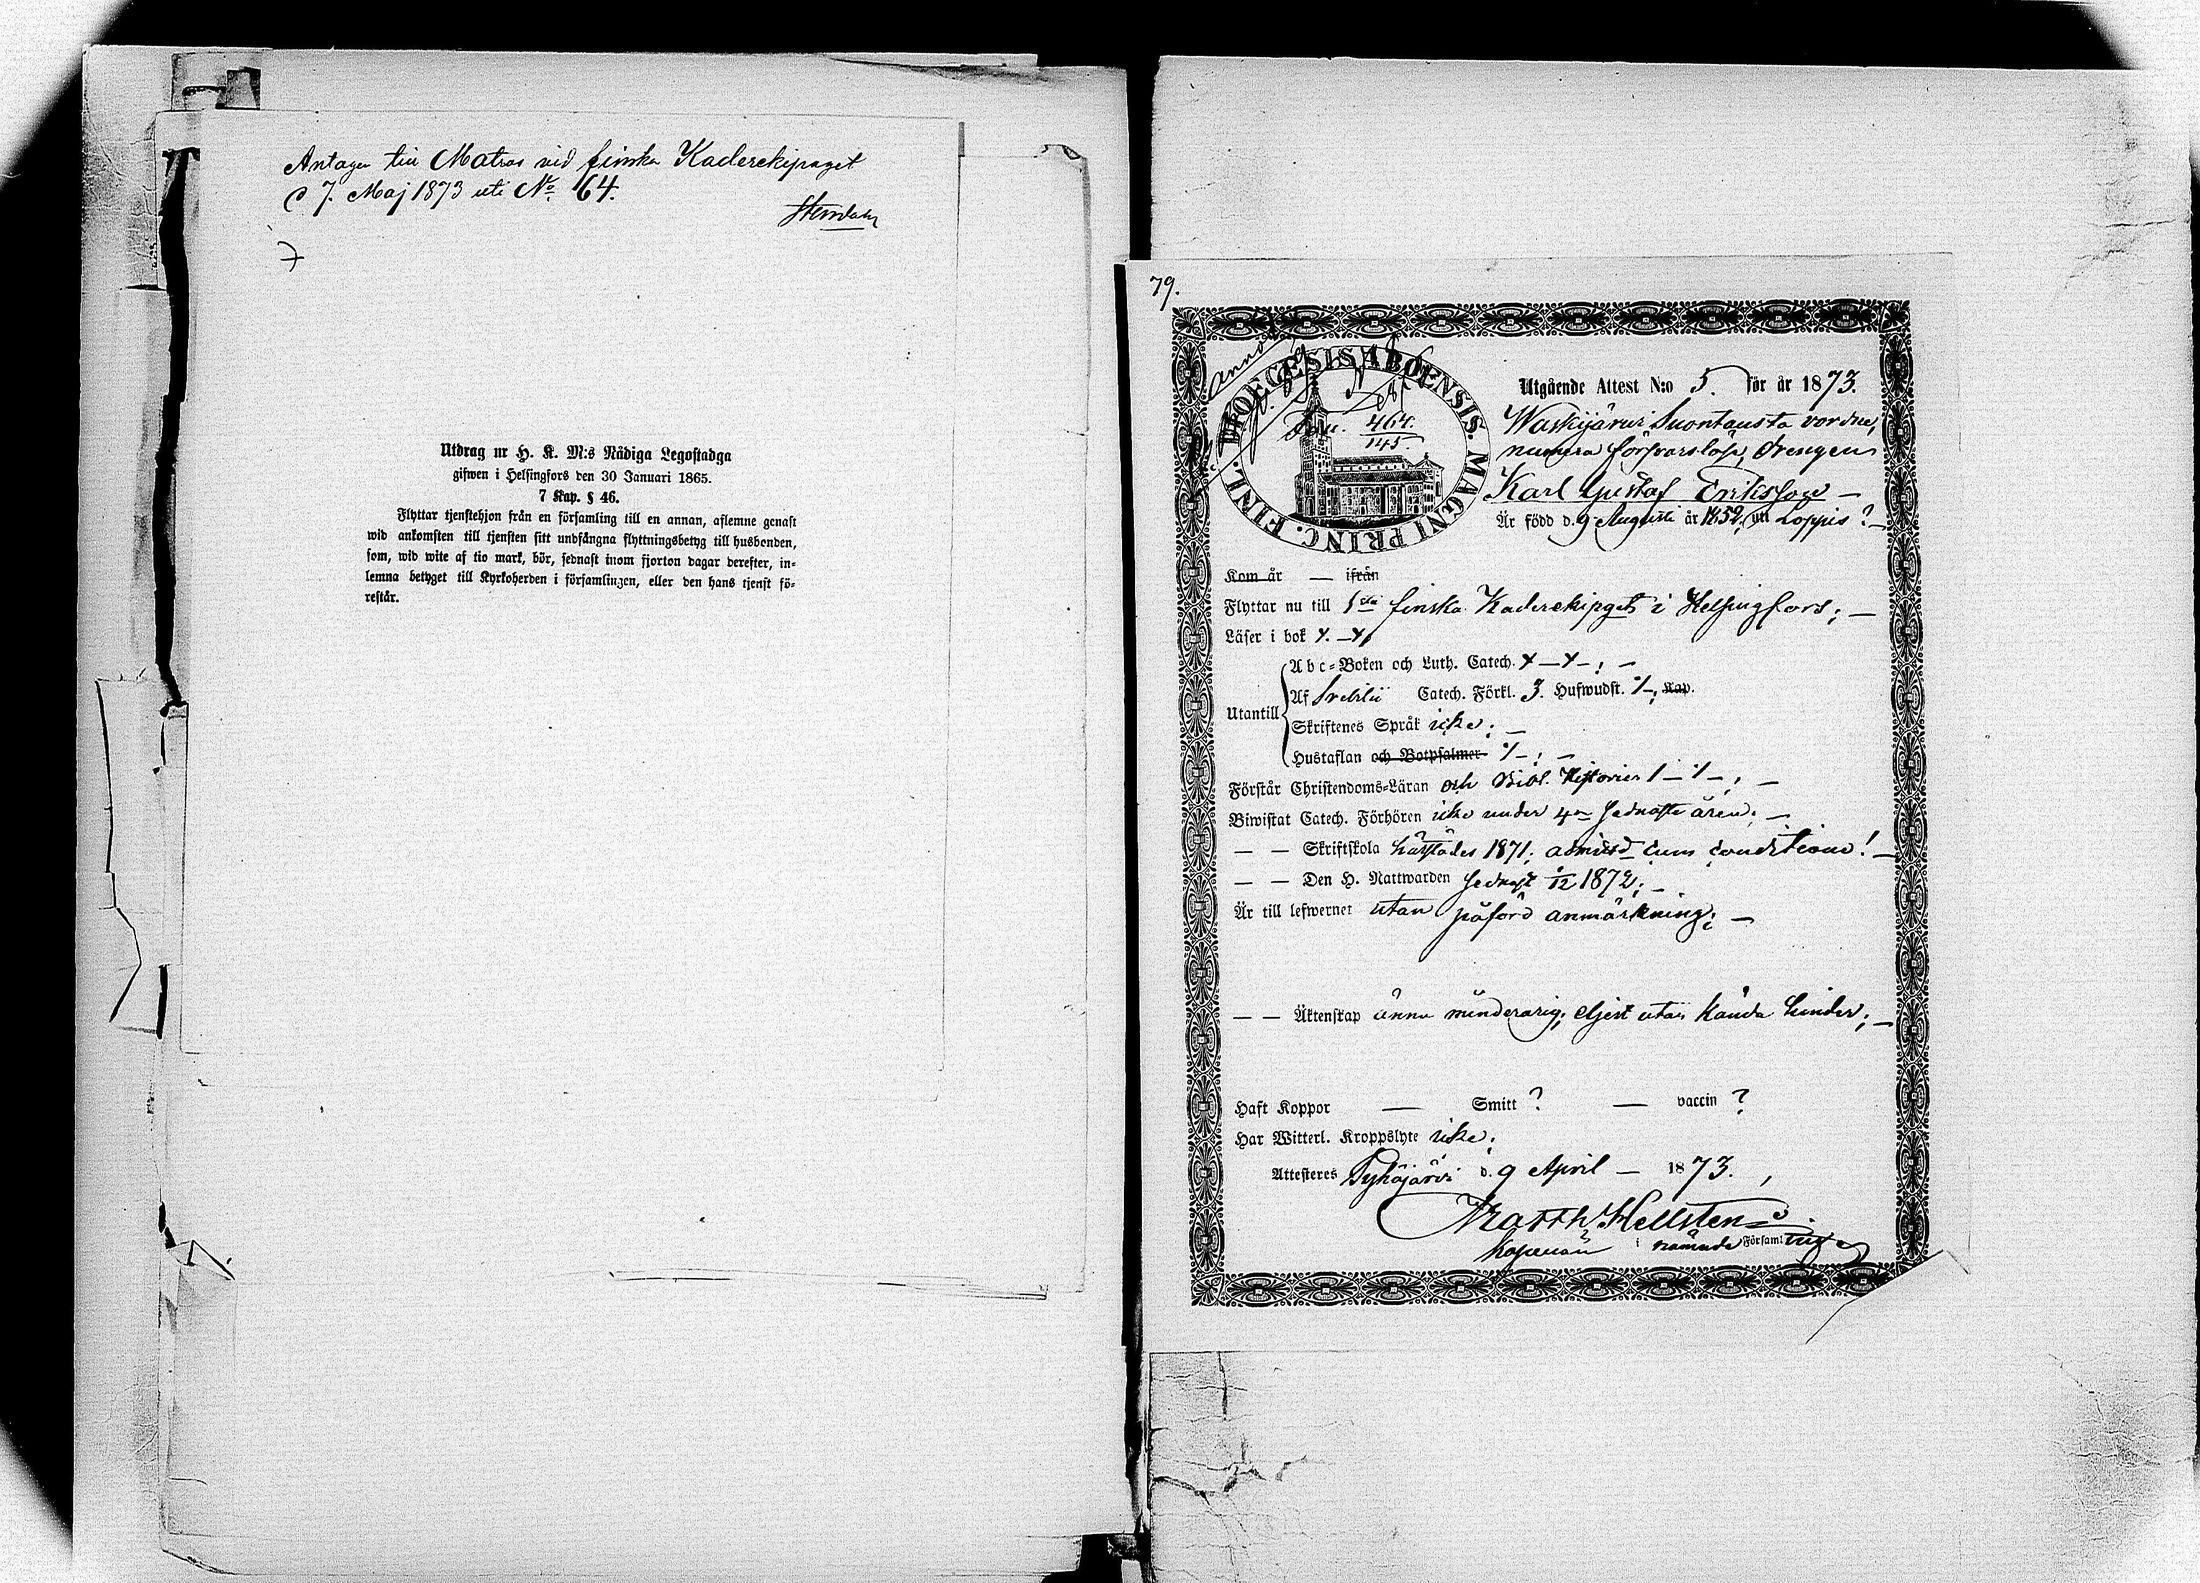 Antagen till Matros vid finska Kaderekipaget
d 7. Maj 1873 uti No 64.
Utdrag ur H. K. M:s Nådiga Legostadga
gifwen i Helsingfors den 30 Januari 1865.
7 Kap. § 46.
Flyttar tjenstehjon från en församling till en annan, aflemne genast
wid ankomsten till tjensten sitt undfångna flyttningsbetyg till husbonden,
som, wid wite af tio mark, bör, sednast inom fjorton dagar derefter, in=
lemna betyget till Kyrkoherden i församlingen, eller den hans tjenst fö=
restår.
79.
DIOECESIS ABOENSIS. MAGNI PRINC. FINL.
464.
145.
Utgående Attest N:o 5. för år 1873.
Waskijärwi Suontausta vordne,
numera försvarslöse, drengen
Karl Gustaf Eriksson —
Är född d. 9 Augusti år 1852, uti Loppis? —
Kom år — ifrån
Flyttar nu till 1sta finska Kaderekipget i Helsingfors; —
Läser i bok
Utantill
Abc=Boken och Luth. Catech.
Af Svebilii Catech. Förkl. 3. Hufwudst. Kap.
Skriftenes Språk icke; —
Hustaflan och Botpsalmer
Förstår Christendoms=Läran och Bibl. Historien
Biwistat Catech. Förhören icke under 4 sednaste åren; —
— — Skriftskola härstädes 1871; admiss cum conditione! —
— — Den H. Nattwarden sednast 1/12 1872; —
Är till lefwernet utan påförd anmärkning; —
— — Äktenskap ännu minderårig, eljest utan kända hinder; —
Haft Koppor — Smitt ? — vaccin ?
Har Witterl. Kroppslyte icke;
Attesteres Pyhäjärvi d. 9 April — 1873.
Matth. Hellsten
Kapellan i nämnde Församling